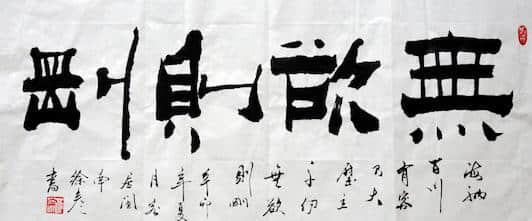 無欲則剛
海納
百川
有容
乃大
壁立
千仞
無欲
則剛
辛卯
年夏
月
南
徐
書